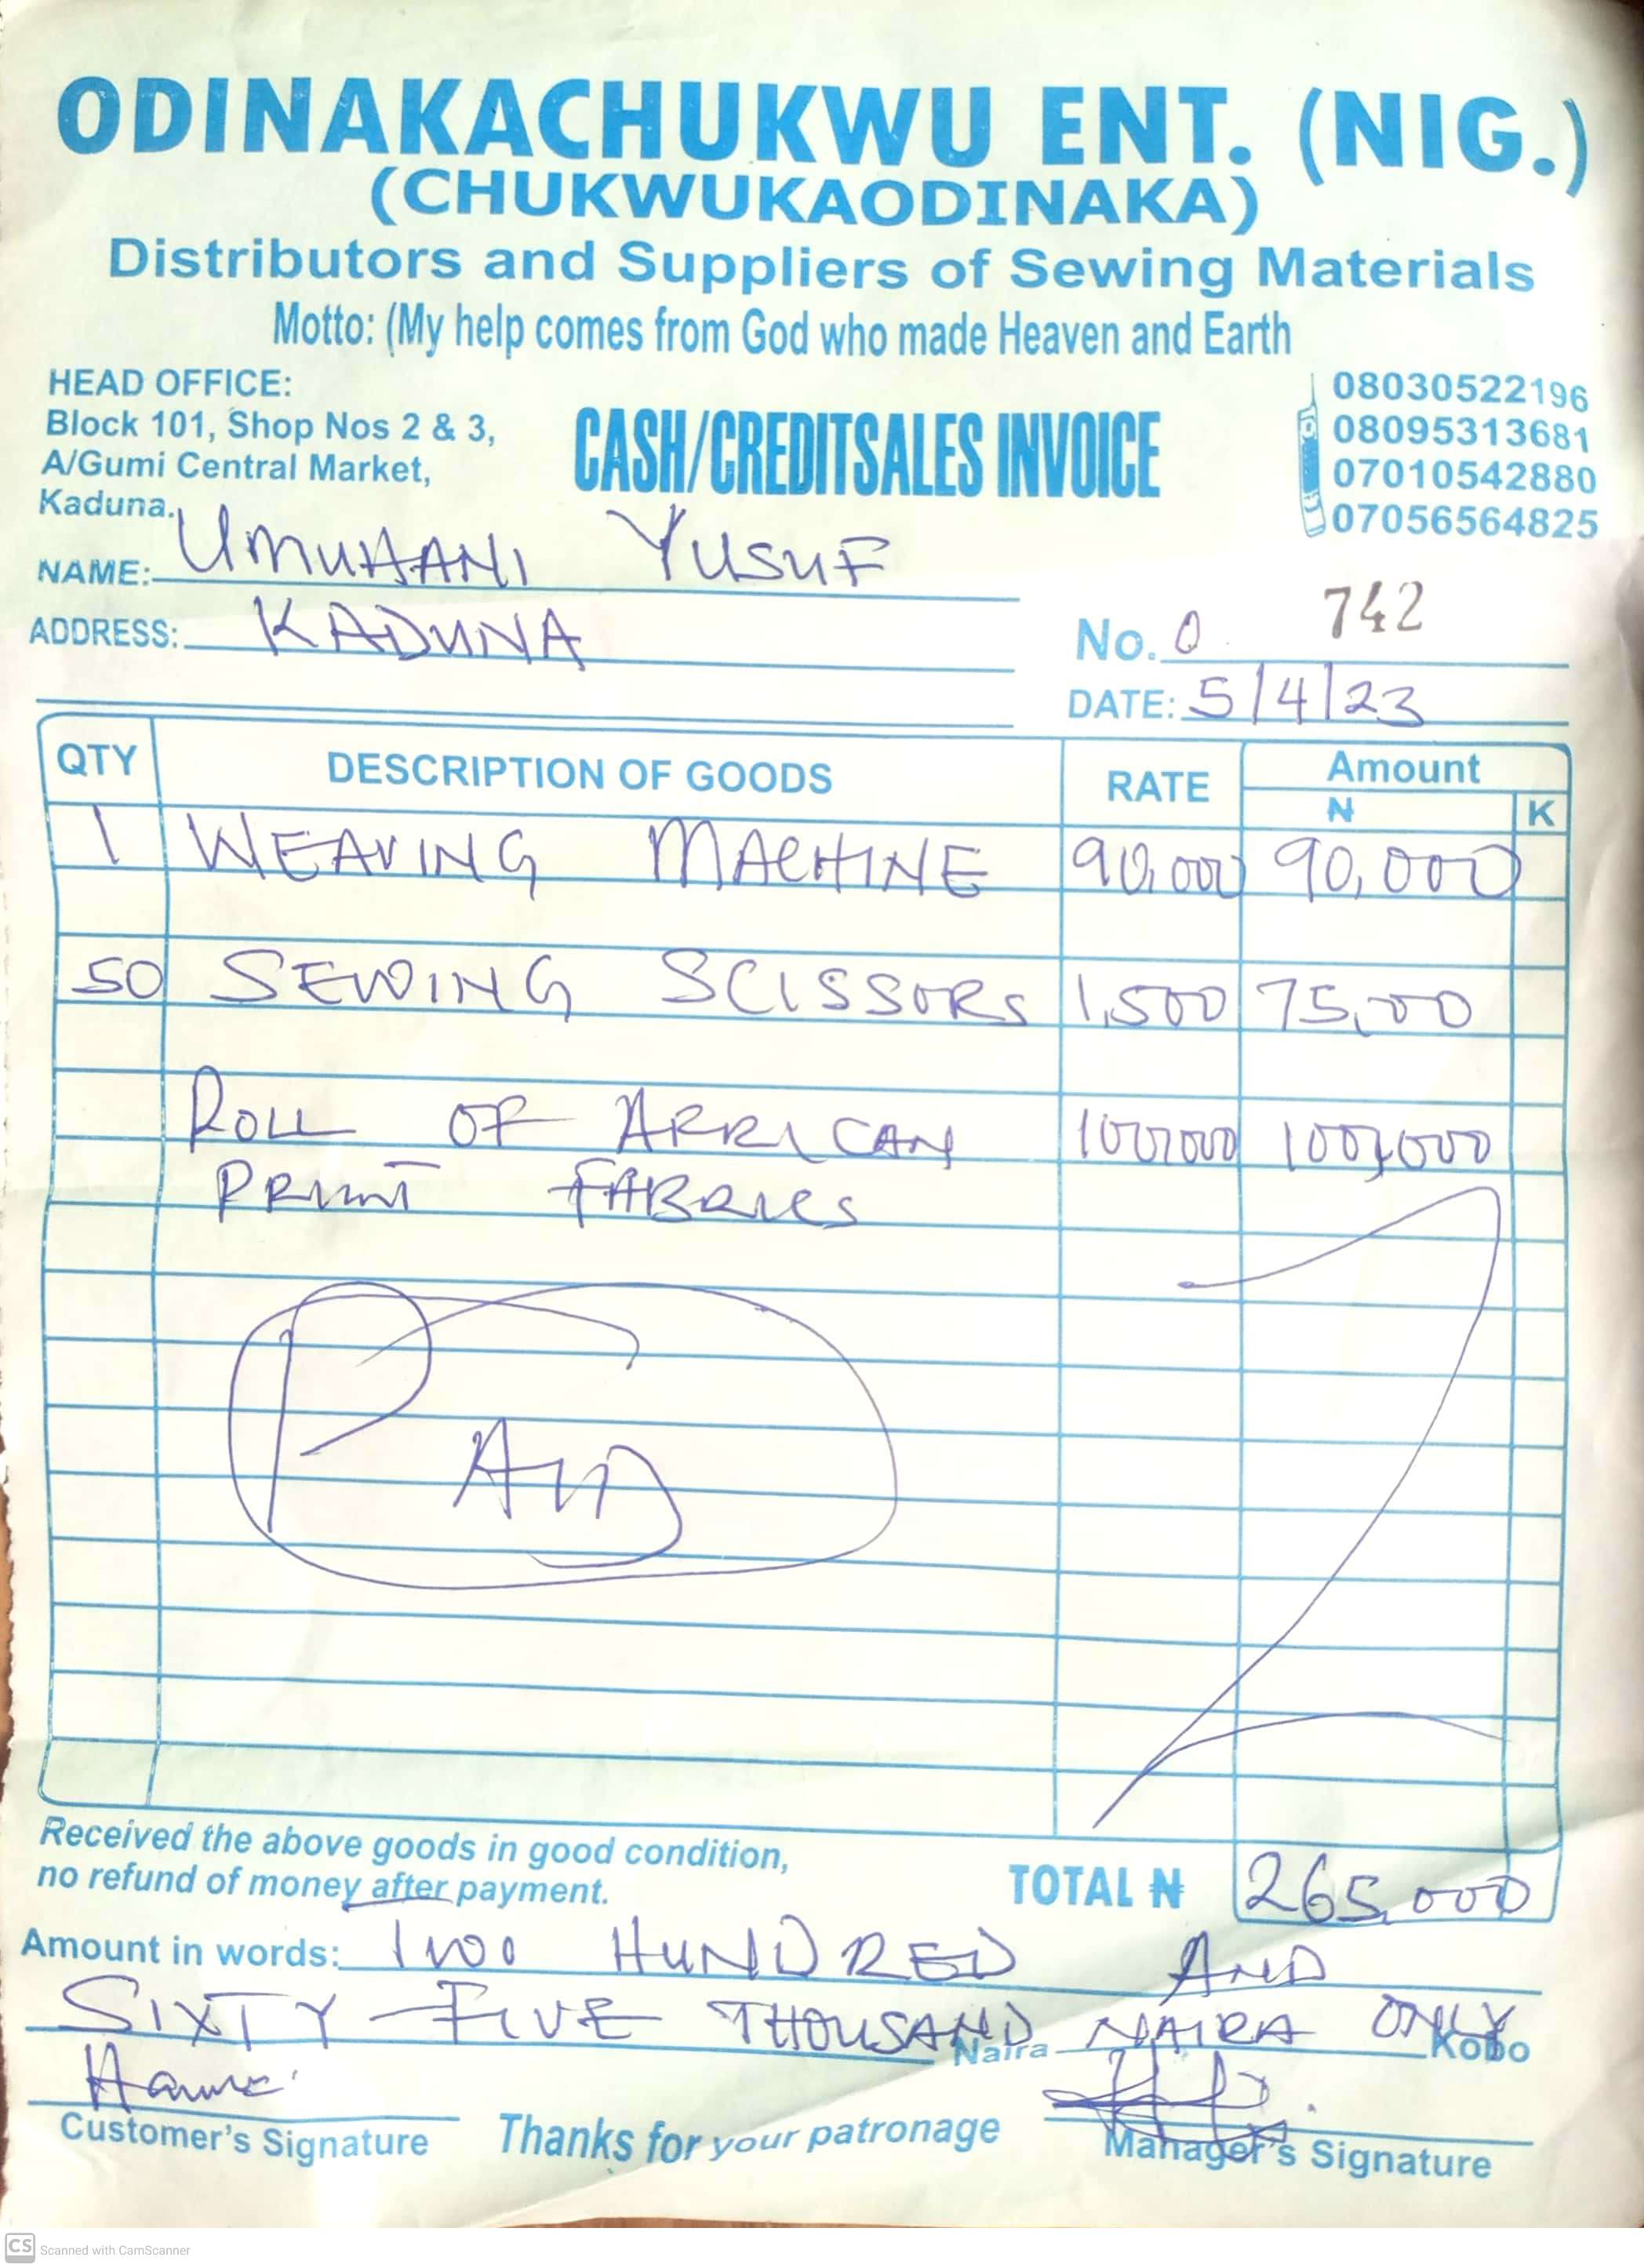 ODINAKACHUKWU ENT. (NIG.)
(CHUKWUKAODINAKA)
Distributors and Suppliers of Sewing Materials
Motto: (My help comes from God who made Heaven and Earth
HEAD OFFICE:
Block 101, Shop Nos 2 & 3,
A/Gumi Central Market,
Kaduna.
CASH/CREDITSALES INVOICE
08030522196
08095313681
07010542880
07056564825
NAME: UMUHANI YUSUF
ADDRESS: KADUNA
No. 0 742
DATE: 5/4/23
QTY DESCRIPTION OF GOODS RATE Amount
N K
1 WEAVING MACHINE 90,000 90,000
50 SEWING SCISSORS 1,500 75,000
ROLL OF AFRICAN 100,000 100,000
PRINT FABRICS
PAID
Received the above goods in good condition,
no refund of money after payment.
TOTAL ₦ 265,000
Amount in words: TWO HUNDRED AND
SIXTY-FIVE THOUSAND NAIRA ONLY
Naira Kobo
Customer's Signature Thanks for your patronage Manager's Signature
CS Scanned with CamScanner